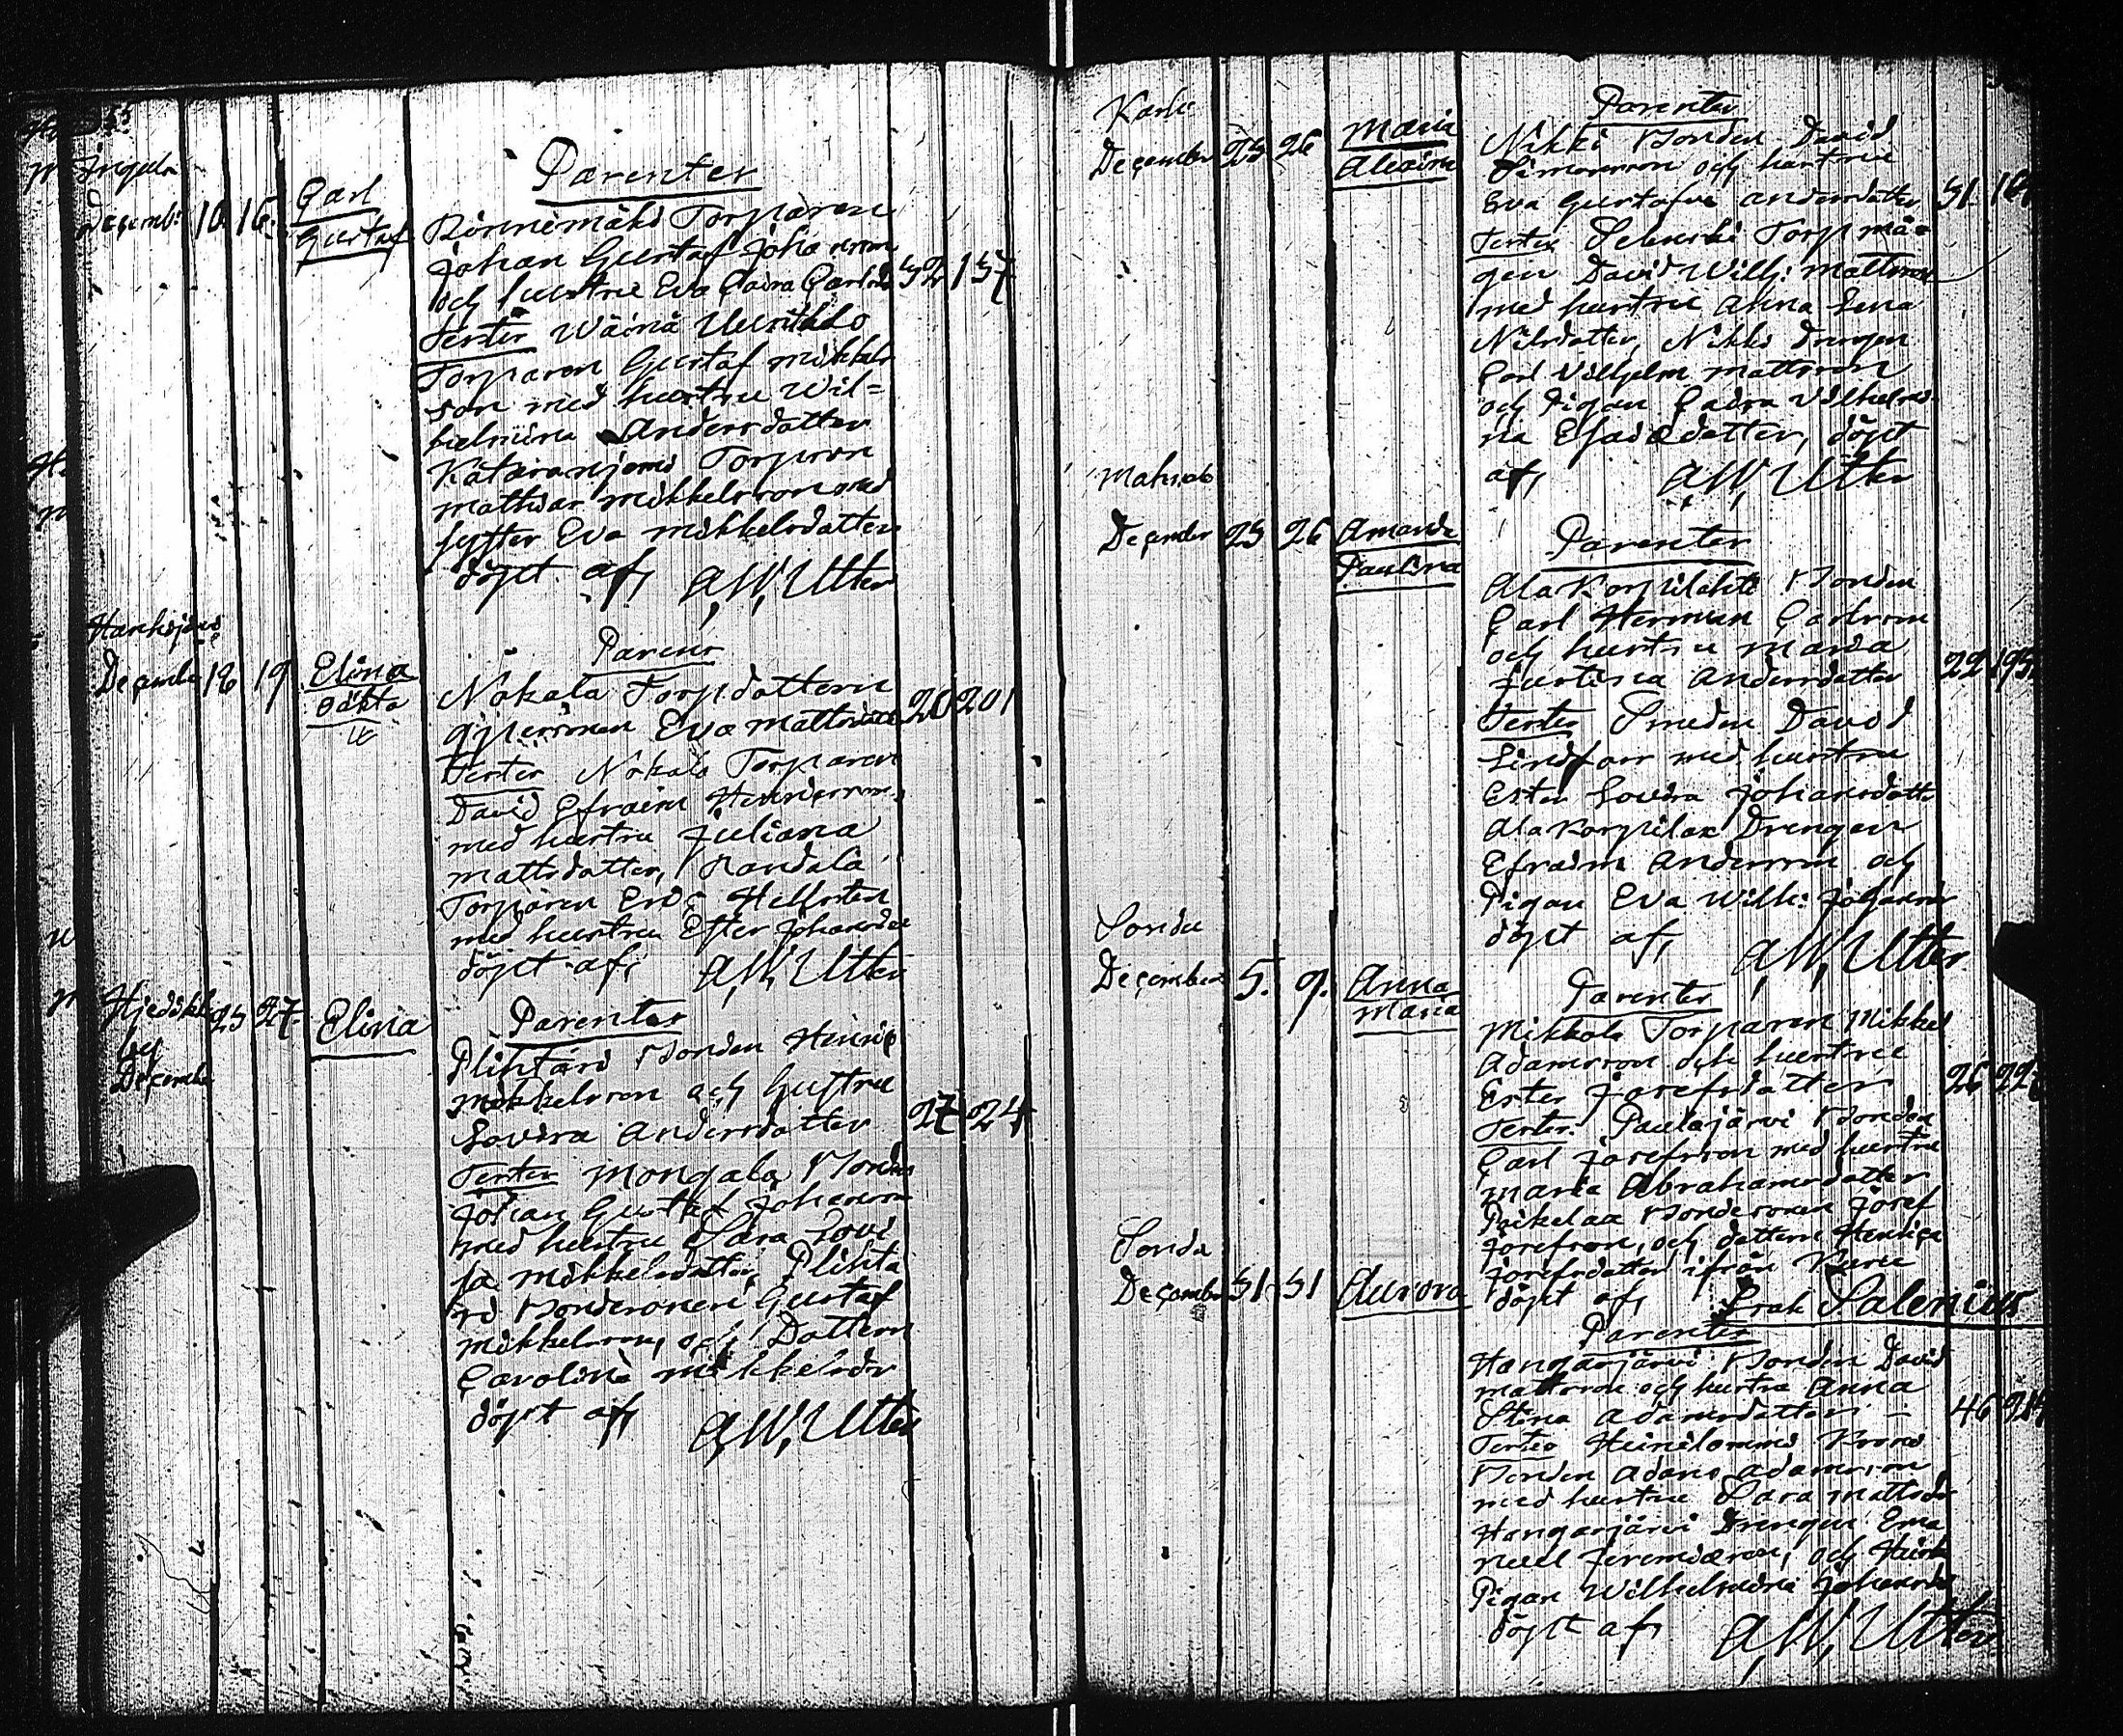 Ingela
Decemb: 10 16. Carl
Gustaf
Parenter
Rinnimäki Torparen
Johan Gustaf Johansson
och hustru Eva Caisa Carlsd 32 157
Tester Wäinä Uusitalo
Torparen Gustaf Mikkels
son med hustru Wil=
helmina Andersdotter
Torparen
Mathias Mikkelsson med
syster Eva Mikkelsdotter
döpt af, A, W, Utter
Hankojoki
Decembe 18 19 Elina
oäkta
Parens
Nokala Torpdottern
qvpersonen Eva Mattsdott 20 201
Tester Nokala Torparen
David Efraim Henricsson
med hustru Juliana
Mattsdotter, Randala
Torparen Eric Hellsten
med hustru Ester Johansdot
döpt af, A, W, Utter
Hjedikk
by
Decemb
25 27. Elina
Parenter
Plihtari Bonden Henric
Mikkelsson och Hustru
Lovisa Andersdotter 27 24
Tester Mongala Bonden
Johan Gustaf Johansson
med hustru Sara Lovi
sa Mikkelsdotter, Plihta
ri Bondesonen Gustaf
Mikkelsson, och Dottern
Carolina Mikkelsdr
döpt af, A, W, Utter
Karhi
December 25 26 Maria
Alexina
Parenter
Nikki Bonden David
Simonsson och hustru
Eva Gustafva Andersdotter 31
Tester Torpmå=
gen David Wilh: Mattsson
med hustru Anna Lena
Nilsdotter, Nikki Drengen
Carl Vilhjelm Mattsson
och Pigan Caisa Vilhelmi
na Esaiædotter, döpt
af, A, W, Utter
Mahnala
December 25 26 Amanda
Paulina
Parenter
Alakorpilahti Bonden
Carl Herman Carlsson
och hustru Maria
Justina Andersdotter 22 195
Tester Smeden David
Lindfors med hustru
Ester Lovisa Johansdotte
Alakorpilax Drengen
Efraim Andersson och
Pigan Eva Wilh: Johansdr
döpt af, A, W, Utter
Sonda
December 5. 9. Anna
Maria
Parenter
Mikkola Torparen Mikkel
Adamsson och hustru
Ester Josefsdotter 26 22
Tester Paulajärvi Bonden
Carl Josefsson med hustru
Maria Abrahamsdotter
Bondesonen Josef
Josefsson, och dottern Henrica
Josefsdotter ifrån Kuru
döpt af, Isak Salenius
Sonda
Decembe 31 31 Aurora
Parenter
Hangasjärvi Bonden David
Mattsson och hustru Anna
Stina Adamsdotter 46
Tester Heinilammi Krono
Bonden Adam Adamsson
med hustru Sara Mattsdr
Hangasjärvi Drengen Ema
nuel Jeremiasson, och
Pigan Wilhelmina Johansdr
döpt af, A, W, Utter